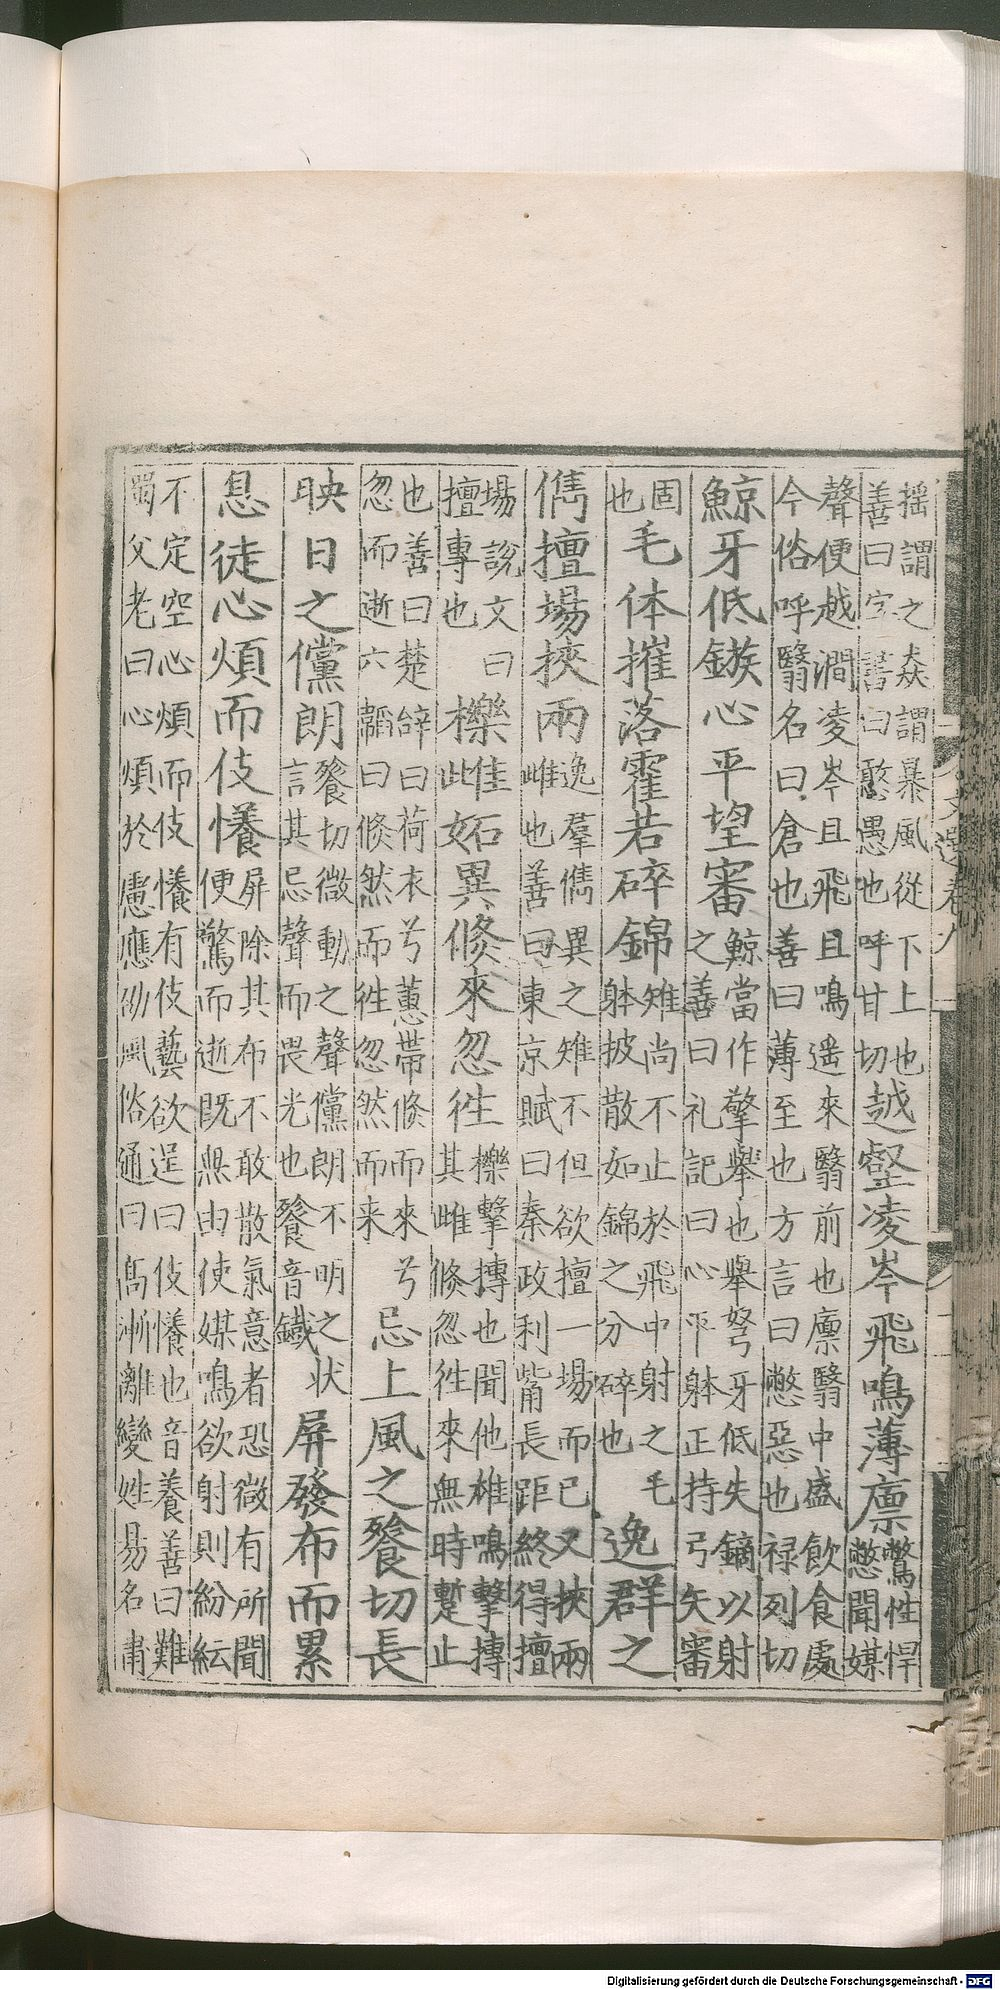 揺謂之猋謂暴風從下上也
善曰字書曰憨愚也呼甘切
越壑凌岑飛鳴薄廩
鷩性悍
憋聞媒
聲便越澗凌岑且飛且鳴遥來翳前也廪翳中盛飲食處
今俗呼翳名曰倉也善曰薄至也方言曰憋惡也禄列切
鯨牙低鏃心平望審
鯨當作擎舉也舉弩牙低失鏑以射
之善曰礼記曰心平躰正持弓矢審
固
也
毛体摧落霍若碎錦
雉尚不止於飛中射之毛
躰披散如錦之分碎也
逸群之
儁擅場挾兩
逸羣儁異之雉不但欲擅一場而已又挾兩
雌也善曰東京賦曰秦政利觜長距終得擅
場説文曰
擅專也
櫟雌妬異倐來忽徃
櫟擊摶也聞他雄鳴擊摶
其雌倐忽徃來無時蹔止
也善曰楚辭曰荷衣兮蕙帶倐而來兮
忽而逝六韜曰倐然而徃忽然而来
忌上風之餮切長
映日之儻朗
餮切微動之聲儻朗不明之状
言其忌聲而畏光也餮音鐵
屏發布而累
息徒心煩而伎懩
屏除其布不敢散氣意者恐微有所聞
便驚而逝旣無由使媒鳴欲射則紛紜
不定空心煩而伎懩有伎藝欲逞曰伎懩也音養善曰難
蜀父老曰心煩於慮應劭風俗通曰髙漸離變姓易名庸
文選卷九
Digitalisierung gefördert durch die Deutsche Forschungsgemeinschaft - DFG